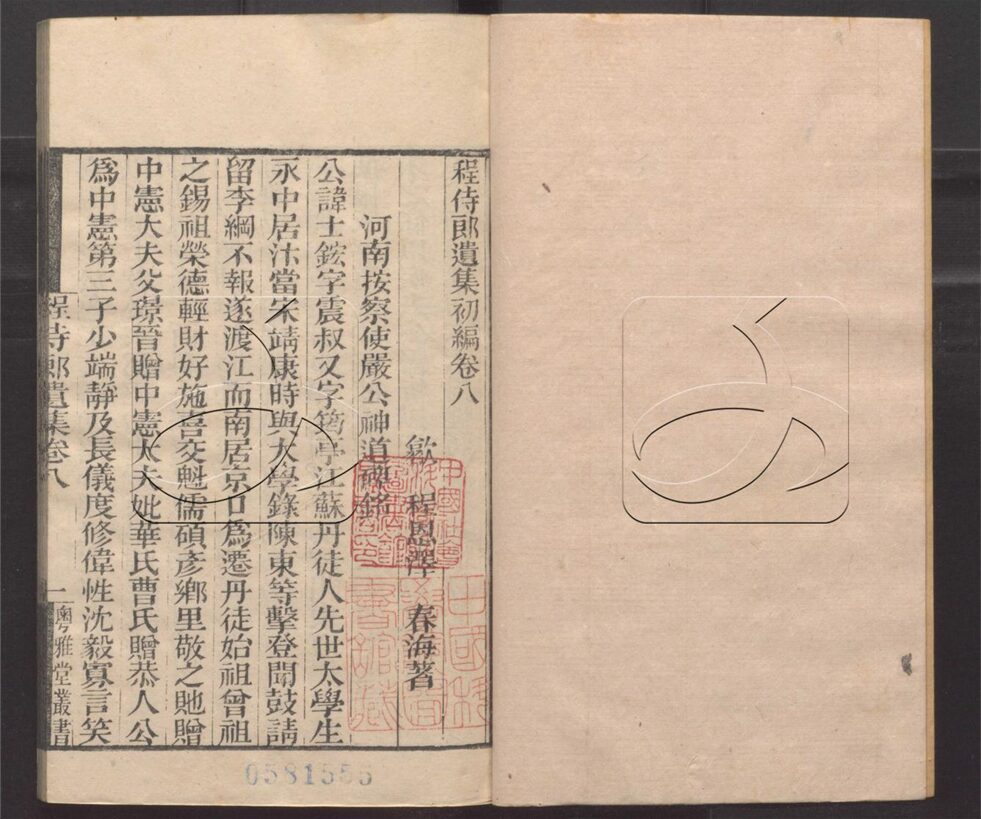 程侍郎遺集初編卷八
歙 程恩澤 春海著
河南按察使嚴公神道碑銘
公諱士鋐字震叔又字筠亭江蘇丹徒人先世太學生
永中居汴當宋靖康時與太學錄陳東等擊登聞鼓請
留李綱不報遂渡江而南居京口爲遷丹徒始祖曾祖
之錫祖榮德輕財好施喜交魁儒碩彥鄉里敬之貤贈
中憲大夫父璟晉贈中憲大夫妣華氏曹氏贈恭人公
爲中憲第三子少端靜及長儀度修偉性沈毅寡言笑
程侍郎遺集卷八 一 粵雅堂叢書
0581555